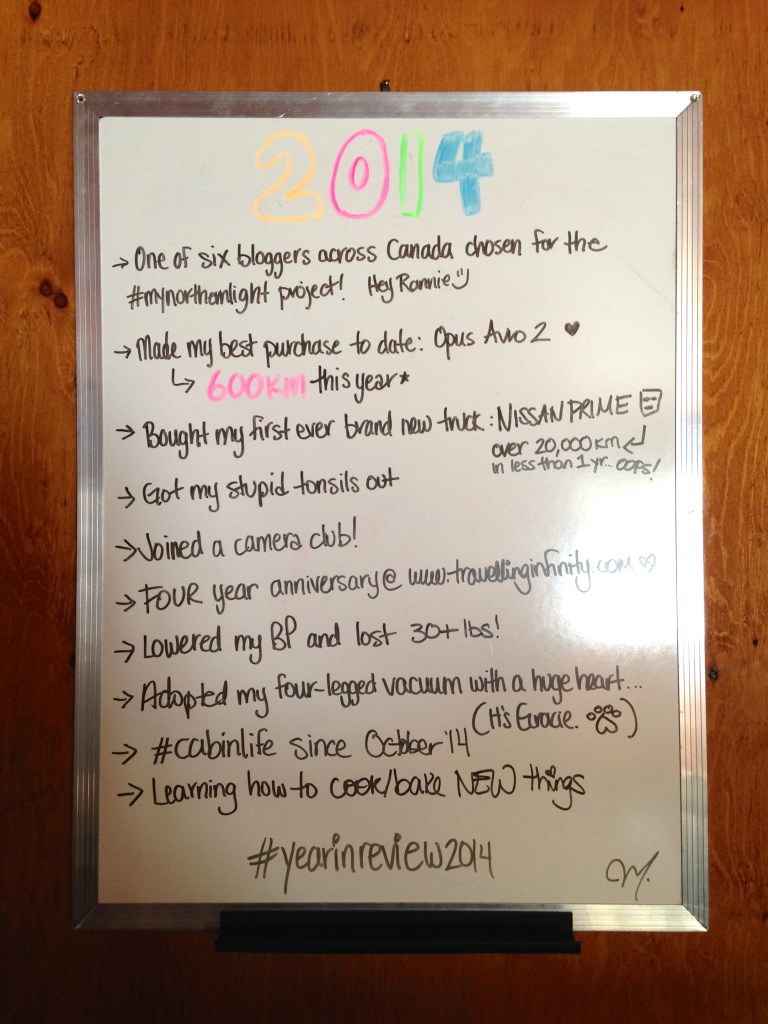 2014
→ One of six bloggers across Canada chosen for the
#mynorthernlight project! Hey Rannie
→ Made my best purchase to date: Opus Avro 2 ♥
↳ 600KM this year*
→ Bought my first ever brand new truck: NISSAN PRIME
over 20,000 km
in less than 1 yr... OOPS!
→ Got my stupid tonsils out
→ Joined a camera club!
→ FOUR year anniversary @ www.travellinginfinity.com ♡
→ Lowered my BP and lost 30+ lbs!
→ Adopted my four-legged vacuum with a huge heart...
(It's Gracie.)
→ #cabinlife since October '14
→ Learning how to cook/bake NEW things
#yearinreview2014
M.